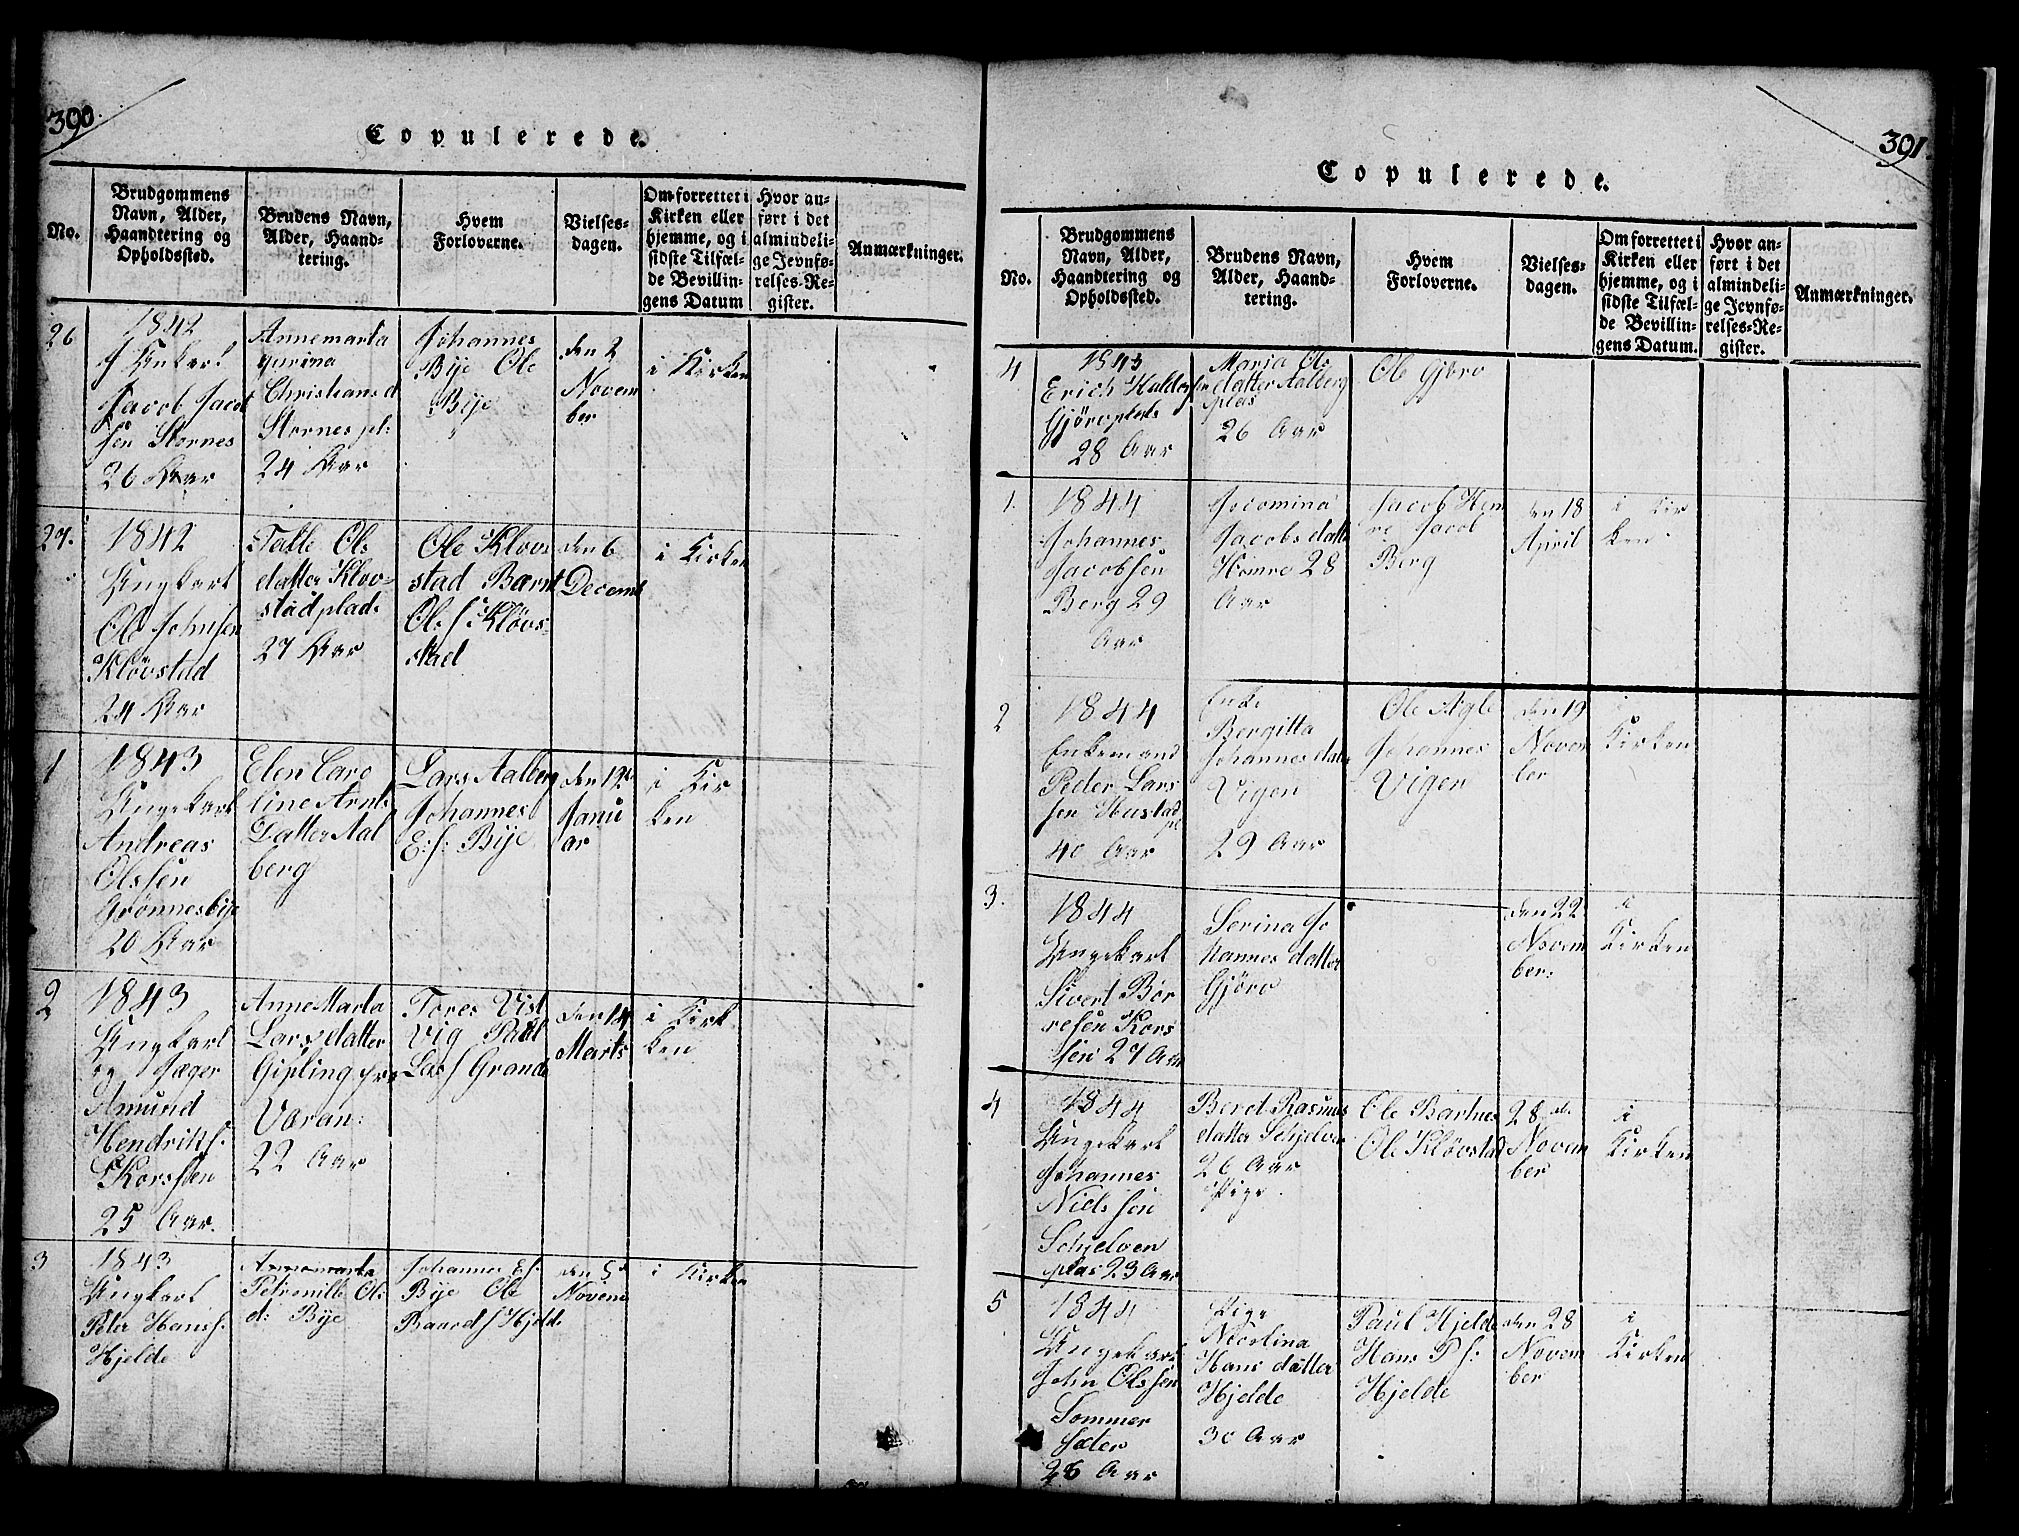 390.
Copulerede.
No.
Brudgommens
Navn, Alder,
Haandtering og
Opholdssted.
Brudens Navn,
Alder, Haand-
tering.
Hvem
Forloverne.
Vielses-
dagen.
Om forrettet i
Kirken eller
hjemme, og i
sidste Tilfæl-
de Bevillin-
gens Datum
Hvor an-
ført i det
almindeli-
ge Jevnfø-
relses-Re-
gister.
Anmærkninger.
26
1842
Jacob Jacob
sen Stornes
26 Aar
Annemarta
Christians d
Stornes pl:
24 Aar
Johannes
Bye Ole
Bye
den 2
Novem
ber
i Kirken
27.
1842
Ungkarl
Ole Johnsen
Kløvstad
24 Aar
Ols
datter Klov-
stadplads
27 Aar
Ole Klovs
stad Bærnt
Ols S: Kløvs-
stad
den 6
Decemb
i Kirken
1
1843
Ungekarl
Andreas
Olssen
Grönnesbye
20 Aar
Elen Caro
line Arnts
Datter Aal
berg
Lars Aalberg
Johannes
E:s: Bye
den 12te
Janu
ar
i Kir
ken
2
1843
Ungkarl
og Jæger
Amund
Hendriks:
Korssen
25 Aar.
Anne Marta
Larsdatter
Gipling fra
Varan:
22 Aar
Tores Vist
Vig Paul
Lars Grande
den 14
Marts
i Kirk
ken
3
1843
Ungkarl
Peter Hanss:
Hjelde
Annemarta
Petronille Ols
d: Bye
Johannes Es:
Bye Ole
Baards Hjelde
den 5t
Novem
i Kirken
391
Copulerede.
No.
Brudgommens
Navn, Alder,
Haandtering og
Opholdssted.
Brudens Navn,
Alder, Haand-
tering.
Hvem
Forloverne.
Vielses-
dagen.
Om forrettet i
Kirken eller
hjemme, og i
sidste Tilfæl-
de Bevillin-
gens Datum.
Hvor an-
ført i det
almindeli-
ge Jevnfø-
relses-Re-
gister.
Anmærkninger.
4
1843
Erich Haldorsen
Gjöroplads
28 Aar
Maria Ols
datter Aalberg
plads
26 Aar
Ole Gjörv
1.
1844
Johannes
Jacobsen
Berg 29
Aar
Jocomina
Jacobs datter
Homre 28
Aar
Jacob Hem
re Jacob
Berg
den 18
April
i Kir
ken
2
1844
Enkemand
Peder Lars
sen Hustad
pl
40 Aar
Enke
Bergitta
Johannes datter
Vigen
29 Aar
Ole Aigle
Johannes
Viger
den 19
Novem
ber
i
Kirken
3.
1844
Ungekarl
Sivert Bör
resen Kors
sen 27 Aar
Serina Jo
hannes datter
Gjörv
den 22
Novem
ber:
i
Kirken
4
1844
Ungekarl
Johannes
Niels sen
Schjelven
plas 23 Aar
Beret Rasmus
datter Schjelven
26 Aar
Pige
Ole Bartnes
Ole Kløvstad
28de
Novem
ber
i
Kirken
5
1844
Ungekarl
John Olssen
Sommer
sæter
26 Aar
Pige
Hans datter
Hjelde
30 Aar
Paul Hjelde
Hans P s:
Hjelde
den 28
Novem
ber
i
Kirken